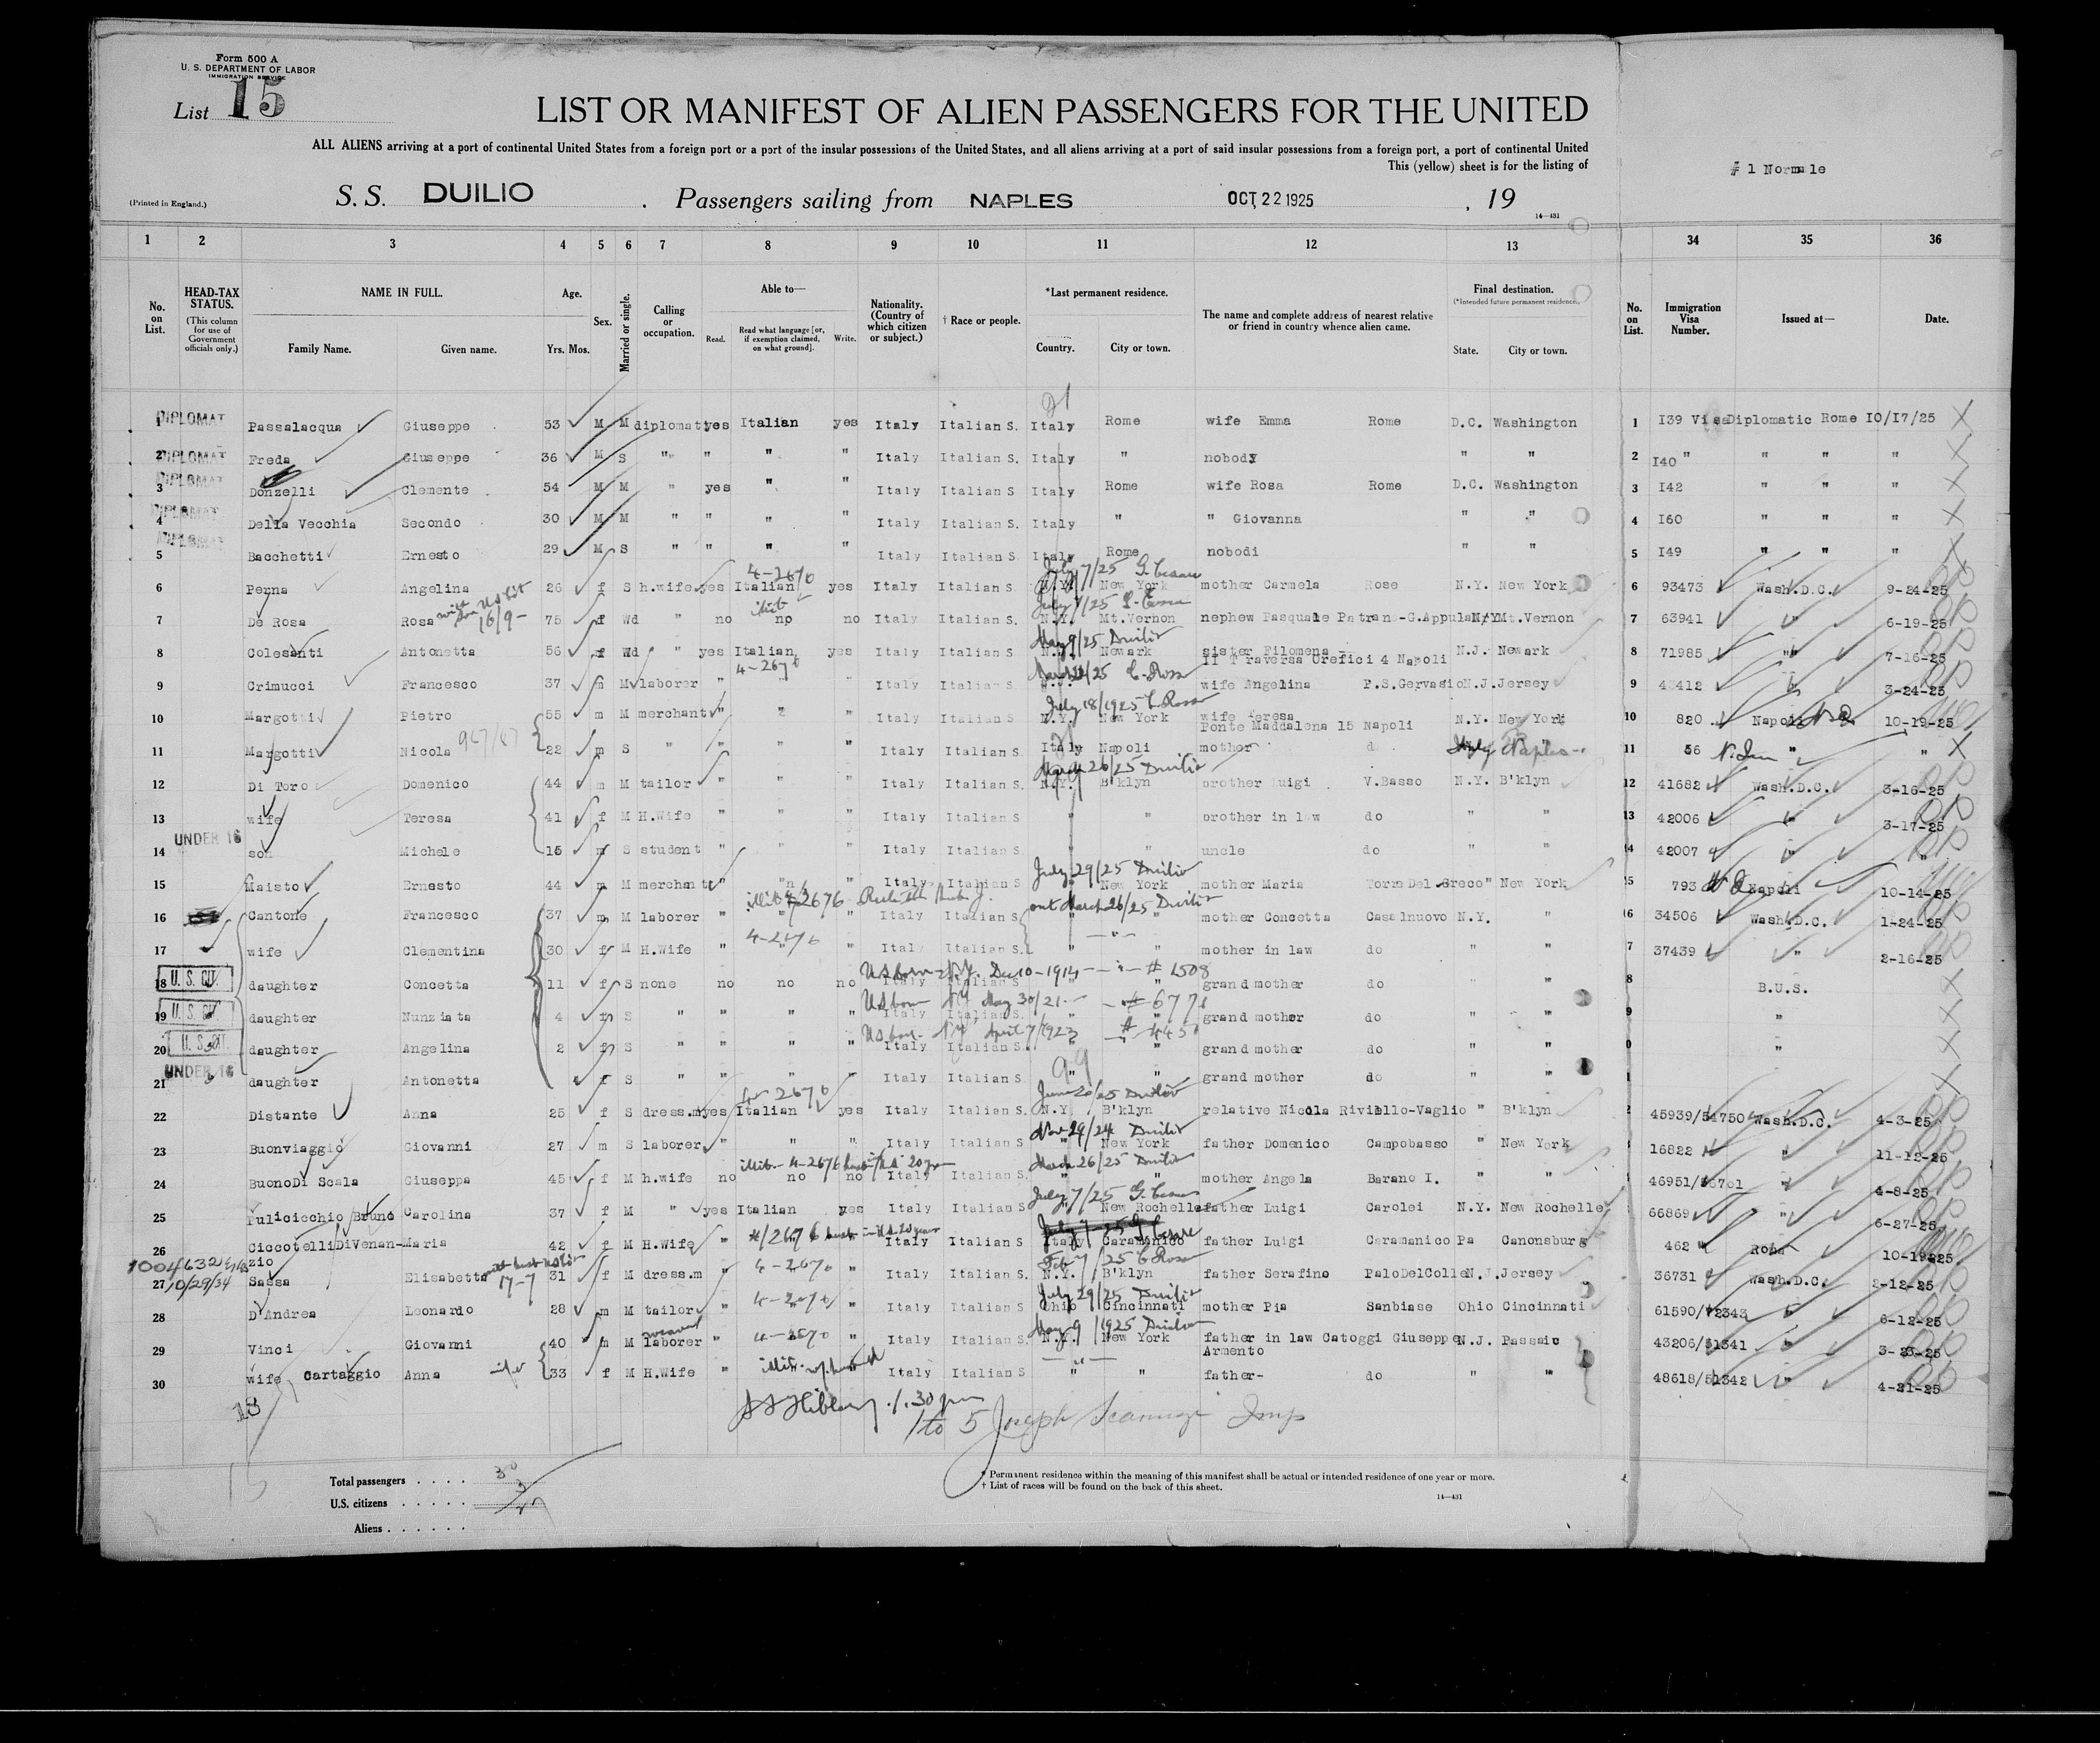 Form 500 A
U. S. DEPARTMENT OF LABOR
IMMIGRATION SERVICE
List 15
LIST OR MANIFEST OF ALIEN PASSENGERS FOR THE UNITED
ALL ALIENS arriving at a port of continental United States from a foreign port or a port of the insular possessions of the United States, and all aliens arriving at a port of said insular possessions from a foreign port, a port of continental United
This (yellow) sheet is for the listing of
# 1 Normale
(Printed in England.) S. S. DUILIO . Passengers sailing from NAPLES OCT 22 1925 , 19
14—431
1 2 3 4 5 6 7 8 9 10 11 12 13 34 35 36
No. on List. HEAD-TAX STATUS. (This column for use of Government officials only.) NAME IN FULL. Family Name. Given name. Age. Yrs. Mos. Sex. Married or single. Calling or occupation. Able to— Read. Read what language [or, if exemption claimed, on what ground]. Write. Nationality. (Country of which citizen or subject.) † Race or people. *Last permanent residence. Country. City or town. The name and complete address of nearest relative or friend in country whence alien came. Final destination. (*Intended future permanent residence.) State. City or town. No. on List. Immigration Visa Number. Issued at— Date.
DIPLOMAT 1 Passalacqua Giuseppe 53 M M diplomat yes Italian yes Italy Italian S. Italy Rome wife Emma Rome D.C. Washington 1 I39 Visa Diplomatic Rome 10/17/25
DIPLOMAT 2 Freda Giuseppe 36 M S " " " " Italy Italian S. Italy " nobody " " 2 I40 " " " "
DIPLOMAT 3 Donzelli Clemente 54 M M " yes " " Italy Italian S Italy Rome wife Rosa Rome D.C. Washington 3 I42 " " "
DIPLOMAT 4 Della Vecchia Secondo 30 M M " " " " Italy Italian S. Italy " " Giovanna " " 4 I60 " " "
DIPLOMAT 5 Bacchetti Ernesto 29 M S " " " " Italy Italian S. Italy Rome nobodi " " 5 I49 " " "
4-2670 July 7/25
6 Perna Angelina 26 f S h.wife yes Italian yes Italy Italian S N.Y. New York mother Carmela Rose N.Y. New York 6 93473 Wash.D.C. 9-24-25
July 7/25
7 De Rosa Rosa 16/9- 75 f Wd " no no no Italy Italian S. N.Y. Mt.Vernon nephew Pasquale Patrano-G.Appula N/Y Mt.Vernon 7 63941 " 6-19-25
May 9/25 Duilio
8 Colesanti Antonetta 56 f Wd " yes Italian yes Italy Italian S. Newark sister Filomena N.J. Newark 8 71985 " 7-16-25
4-2670 II Traversa Orefici 4 Napoli
9 Crimucci Francesco 37 m M laborer " " Italy Italian S wife Angelina P.S.Gervasio N.J. Jersey 9 3-24-25
July 18/1925 C. Rossa
10 Margotti Pietro 55 m M merchant " " " Italy Italian S. N.Y. New York wife Teresa N.Y. New York 10 820 Napoli 10-19-25
Ponte Maddalena 15 Napoli
11 Margotti Nicola 22 m S " " " " Italy Italian S. Italy Napoli mother Naples 11 56 " "
March 26/25 Duilio
12 Di Toro Domenico 44 m M tailor " " " Italy Italian S. N.Y. B'klyn brother Luigi V.Basso N.Y. B'klyn 12 41682 Wash.D.C. 3-16-25
13 wife Teresa 41 f M H.Wife " " " Italy Italian S " " brother in law do " " 13 42006 " 3-17-25
UNDER 16
14 son Michele 15 m S student " " " Italy Italian S " " uncle do " " 14 42007 " "
July 29/25 Duilio
15 Maisto Ernesto 44 m M merchant " " " Italy Italian S " New York mother Maria Torre Del Greco " New York 15 793 Napoli 10-14-25
out March 26/25 Duilio
16 Cantone Francesco 37 m M laborer " " " Italy Italian S mother Concetta Casalnuovo N.Y. " 16 34506 Wash.D.C. 1-24-25
4-2676
17 wife Clementina 30 f M H.Wife " " " Italy Italian S. " " mother in law do " " 17 37439 " 2-16-25
US born N.Y. Dec 10-1914 # 1508
U. S. CIT. 18 daughter Concetta 11 f S none no no no Italy Italian S " grand mother do " " 8 B.U.S.
US born NY May 30/21
U. S. CIT. 19 daughter Nunziata 4 S " " " " Italy Italian S. grand mother do " " 9 "
US born N.Y. April 7/1923
U. S. CIT. 20 daughter Angelina 2 S " " " " Italy Italian S. " grand mother do " " "
UNDER 16
21 daughter Antonetta f S " " " " Italy Italian S " " grand mother do " "
2670 June 20/25 Duilio
22 Distante Anna 25 f S dress.m yes Italian yes Italy Italian S. N.Y. B'klyn relative Nicola Riviello-Vaglio " B'klyn 2 45939/54750 Wash.D.C. 4-3-25
Nov 29/24 Duilio
23 Buonviaggio Giovanni 27 m S laborer " " " Italy Italian S " New York father Domenico Campobasso " New York 16822 " 11-12-25
March 26/25 Duilio
24 Buono Di Scala Giuseppa 45 f M h.wife no no no Italy Italian S. " " mother Angela Barano I. " " 46951/ " 4-8-25
July 7/25
25 Pulicicchio Bruno Carolina 37 f M " yes Italian yes Italy Italian S " New Rochelle father Luigi Carolei N.Y. New Rochelle 66869 " 6-27-25
26 Ciccotelli DiVenan-zio Maria 42 f M H.Wife " Italy Italian S Italy Caramanico father Luigi Caramanico Pa Canonsburg 462 Roma 10-19-25
Feb 7/25 C Rossa
27 10/29/34 Sassa Elisabetta 17-7 31 f M dress.m " 4-2670 " Italy Italian S. N.Y. B'klyn father Serafino PaloDelColle N.J. Jersey 36731 Wash.D.C. 2-12-25
July 29/25 Duilio
28 D'Andrea Leonardo 28 m M tailor " 4-2670 " Italy Italian S Ohio Cincinnati mother Pia Sanbiase Ohio Cincinnati 61590/72343 " 6-12-25
weaver May 9/1925 Duilio
29 Vinci Giovanni 40 m M laborer " 4-2670 " Italy Italian S. N.Y. New York father in law Catoggi Giuseppe N.J. Passaic 43206/51341 " 3-23-25
Armento
30 wife Cartaggio Anna wife 33 f M H.Wife " " Italy Italian S " " father- do " " 48618/51342 " 4-21-25
1.30 pm
1 to 5 Joseph
Total passengers . . . . 30
U.S. citizens . . . . . 3
Aliens . . . . . .
* Permanent residence within the meaning of this manifest shall be actual or intended residence of one year or more.
† List of races will be found on the back of this sheet.
14—431